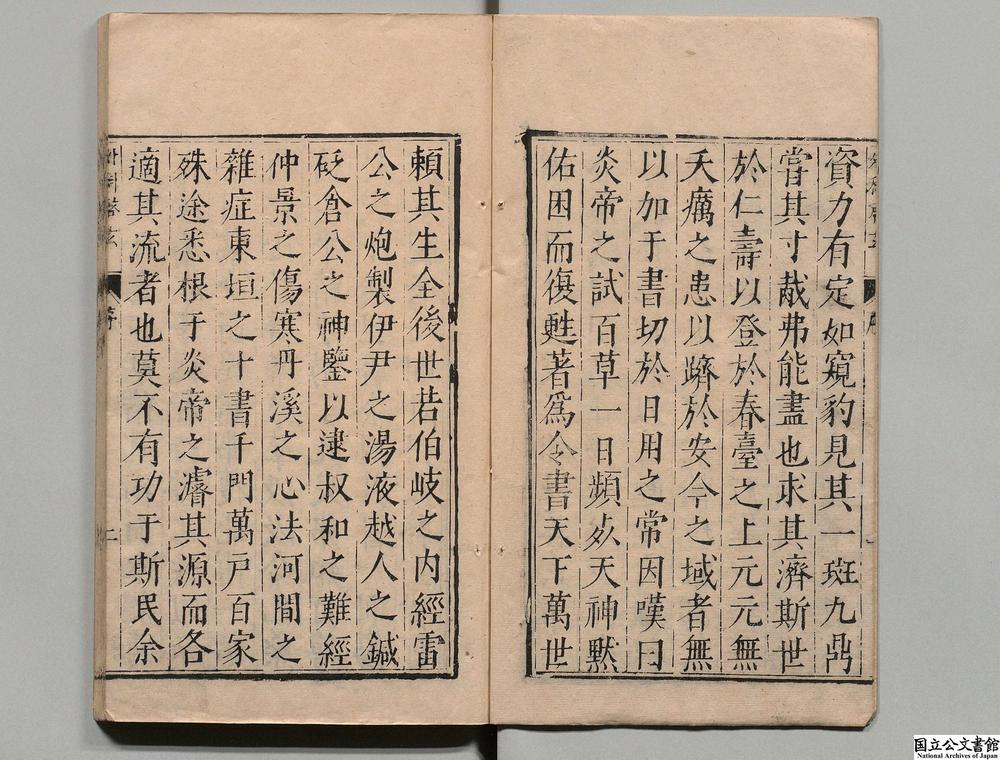 資力有定如窺豹見其一斑九鼎
嘗其寸胾弗能盡也求其濟斯世
於仁壽以登於春臺之上元元無
夭癘之患以躋於安今之域者無
以加于書切於日用之常因嘆曰
炎帝之試百草一日頻死天神默
佑困而復甦著爲令書天下萬世
賴其生全後世若伯岐之内經雷
公之炮製伊尹之湯液越人之鍼
砭倉公之神鑒以逮叔和之難經
仲景之傷寒丹溪之心法河間之
雜症東垣之十書千門萬戸百家
殊途悉根于炎帝之濬其源而各
適其流者也莫不有功于斯民余
外科啓玄
序
二
国立公文書館
National Archives of Japan